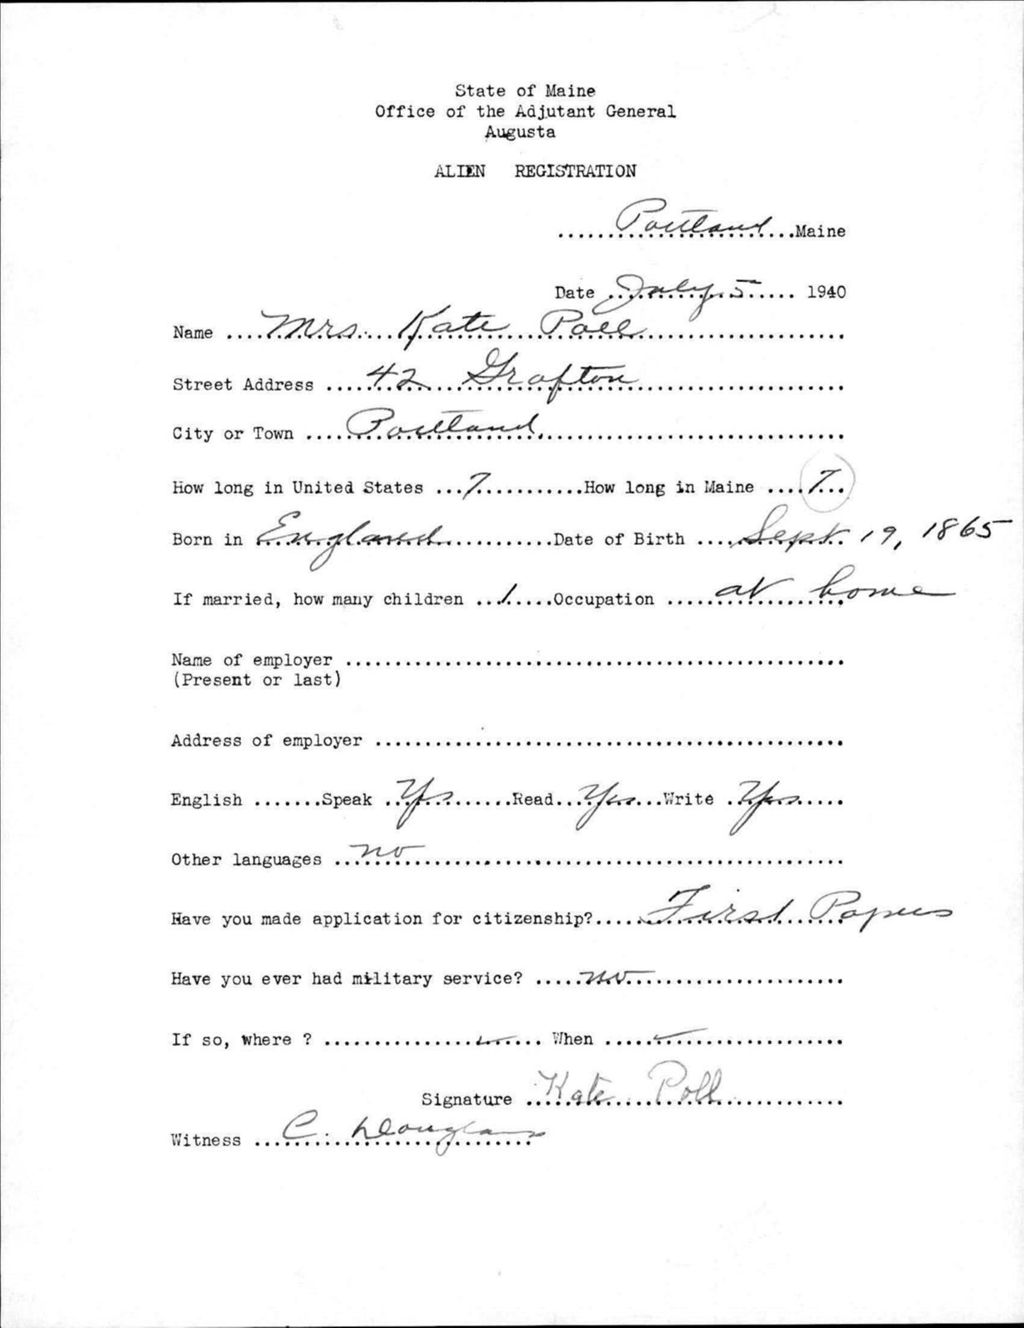 State of Maine
Office of the Adjutant General
Augusta
ALIEN REGISTRATION
Portland Maine
Date July 5 1940
Name Mrs. Kate Poll
Street Address 42 Grafton
City or Town Portland
How long in United States 7 How long in Maine 7
Born in England Date of Birth Sept. 19, 1865
If married, how many children 1 Occupation at home
Name of employer
(Present or last)
Address of employer
English Speak Yes Read Yes Write Yes
Other languages no
Have you made application for citizenship? First Papers
Have you ever had military service? no
If so, where ? When
Signature Kate Poll
Witness C. Douglass